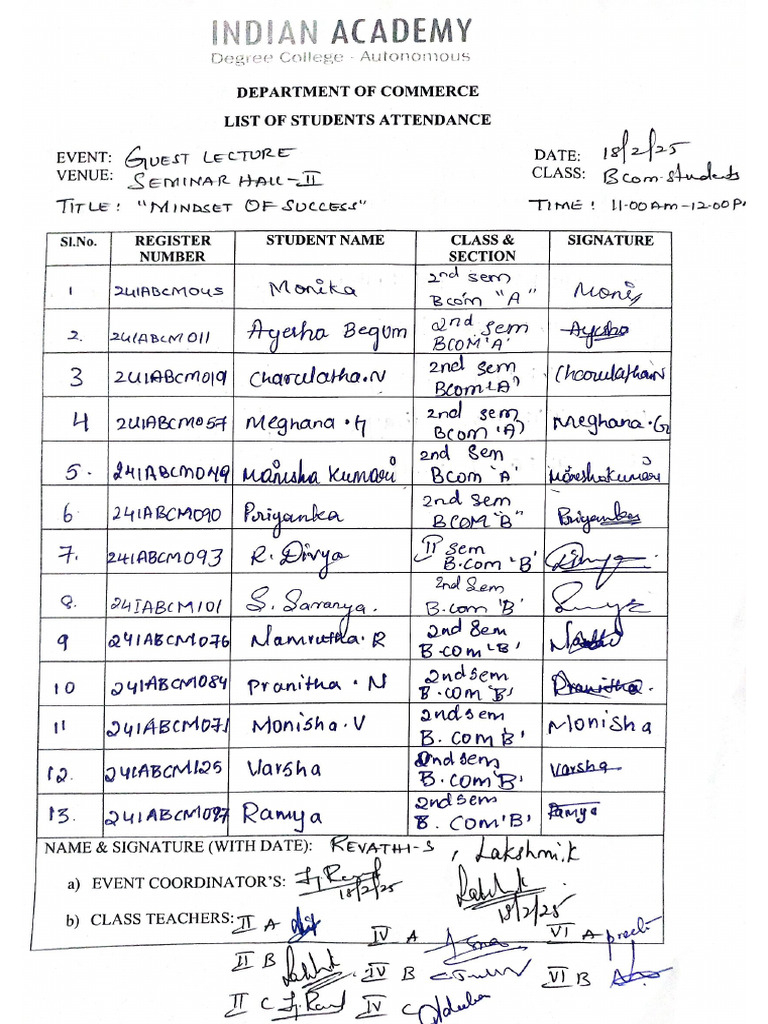 INDIAN ACADEMY
Degree College - Autonomous
DEPARTMENT OF COMMERCE
LIST OF STUDENTS ATTENDANCE
EVENT: GUEST LECTURE DATE: 18/2/25
VENUE: SEMINAR HALL-II CLASS: Bcom-Students
TITLE: "MINDSET OF SUCCESS" TIME: 11.00AM-12.00P.
Sl.No. REGISTER NUMBER STUDENT NAME CLASS & SECTION SIGNATURE
1 241ABCM045 Monika 2nd sem Bcom "A" Moni
2. 241ABCM011 Ayesha Begum 2nd sem BCOM 'A' Ayesha
3 241ABCM019 Charulatha.N 2nd sem Bcom 'A' Charulatha N
4 241ABCM057 Meghana.G 2nd sem Bcom 'A' Meghana.G
5. 241ABCM049 Manisha Kumari 2nd Sem Bcom 'A' Manisha kumari
6 241ABCM090 Priyanka 2nd sem BCOM "B" Priyanka
7. 241ABCM093 R. Divya II sem B.com 'B' Divya
8. 241ABCM101 S. Saranya. 2nd Sem B.com 'B'
9 241ABCM076 Namrutha.R 2nd Sem B.com 'B'
10 241ABCM084 Pranitha.N 2nd sem B.com 'B' Pranitha.
11 241ABCM071 Monisha.V 2nd sem B.COM 'B' Monisha
12. 241ABCM125 Varsha 2nd sem B.COM 'B' Varsha
13. 241ABCM097 Ramya 2nd sem B. COM 'B' Ramya
NAME & SIGNATURE (WITH DATE): REVATHI-S, Lakshmi.K
a) EVENT COORDINATOR'S: 18/2/25 18/2/25
b) CLASS TEACHERS: II A IV A VI A
II B IV B VI B
II C IV C